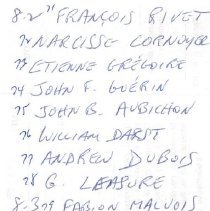 8-2 71 FRANÇOIS RIVET
72 NARCISSE CORNOYER
73 ETIENNE GRÉGOIRE
74 JOHN F. GUÉRIN
75 JOHN B. AUBICHON
76 WILLIAM DARST
77 ANDREW DUBOIS
78 G. LEASURE
8-3 79 FABION MALUOIS